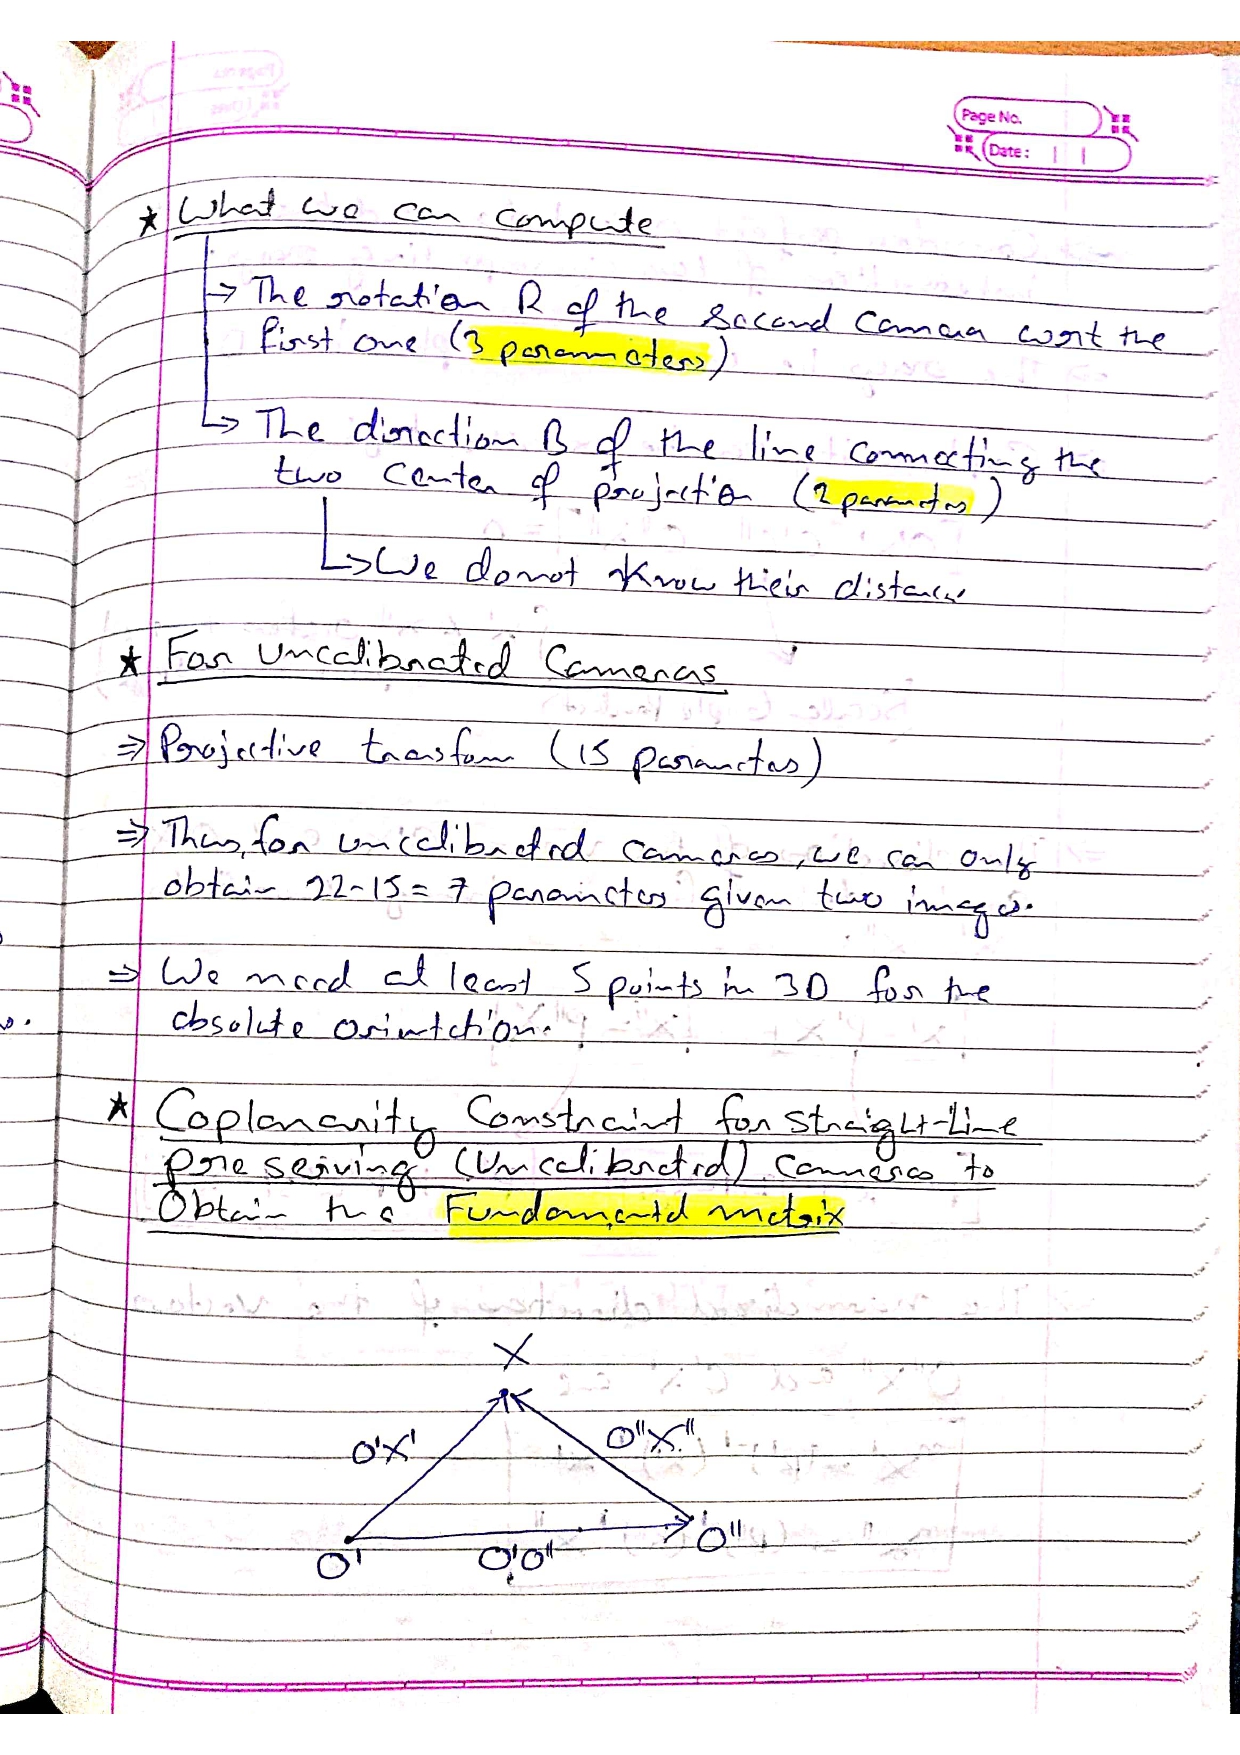 Page No.
Date:
★ What we can compute
→ The rotation R of the second camera wrt the
first one (3 parameters)
↳ The direction B of the line connecting the
two center of projection (2 parameters)
↳ We do not know their distance
★ For Uncalibrated Cameras
⇒ Projective transform (15 parameters)
⇒ Thus, for uncalibrated cameras, we can only
obtain 22-15 = 7 parameters given two images.
⇒ We need at least 5 points in 3D for the
absolute orientation.
★ Coplanarity Constraint for straight-Line
preserving (Uncalibrated) cameras to
Obtain the Fundamental matrix
X
O'X' O"X"
O' O'O" O"